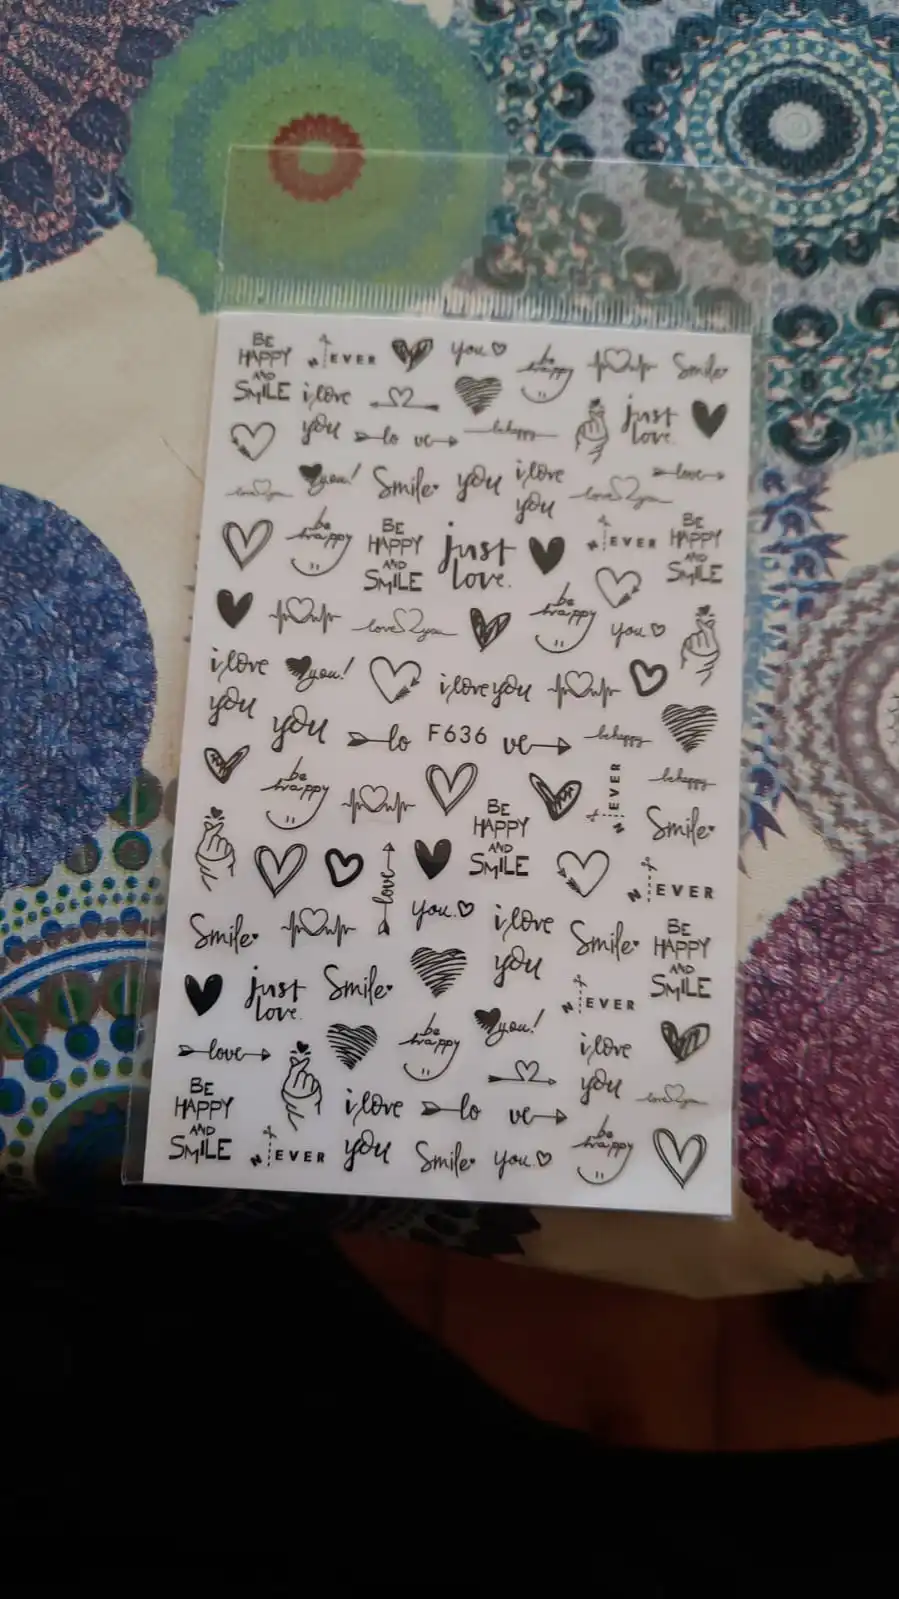 BE HAPPY AND SMILE
NEVER
you
be happy
Smile
i love you
lo ve
be happy
just love.
love you
you!
Smile
you
i love you
love you
love
be happy
BE HAPPY AND SMILE
just love.
NEVER
BE HAPPY AND SMILE
love you
be happy
you
i love you
you!
i love you
you
lo
F636
ve
be happy
be happy
NEVER
be happy
BE HAPPY AND SMILE
Smile
love
NEVER
Smile
you
i love you
Smile
BE HAPPY AND SMILE
just love.
Smile
NEVER
love
be happy
you!
i love you
BE HAPPY AND SMILE
i love you
lo ve
love you
NEVER
Smile
you
be happy